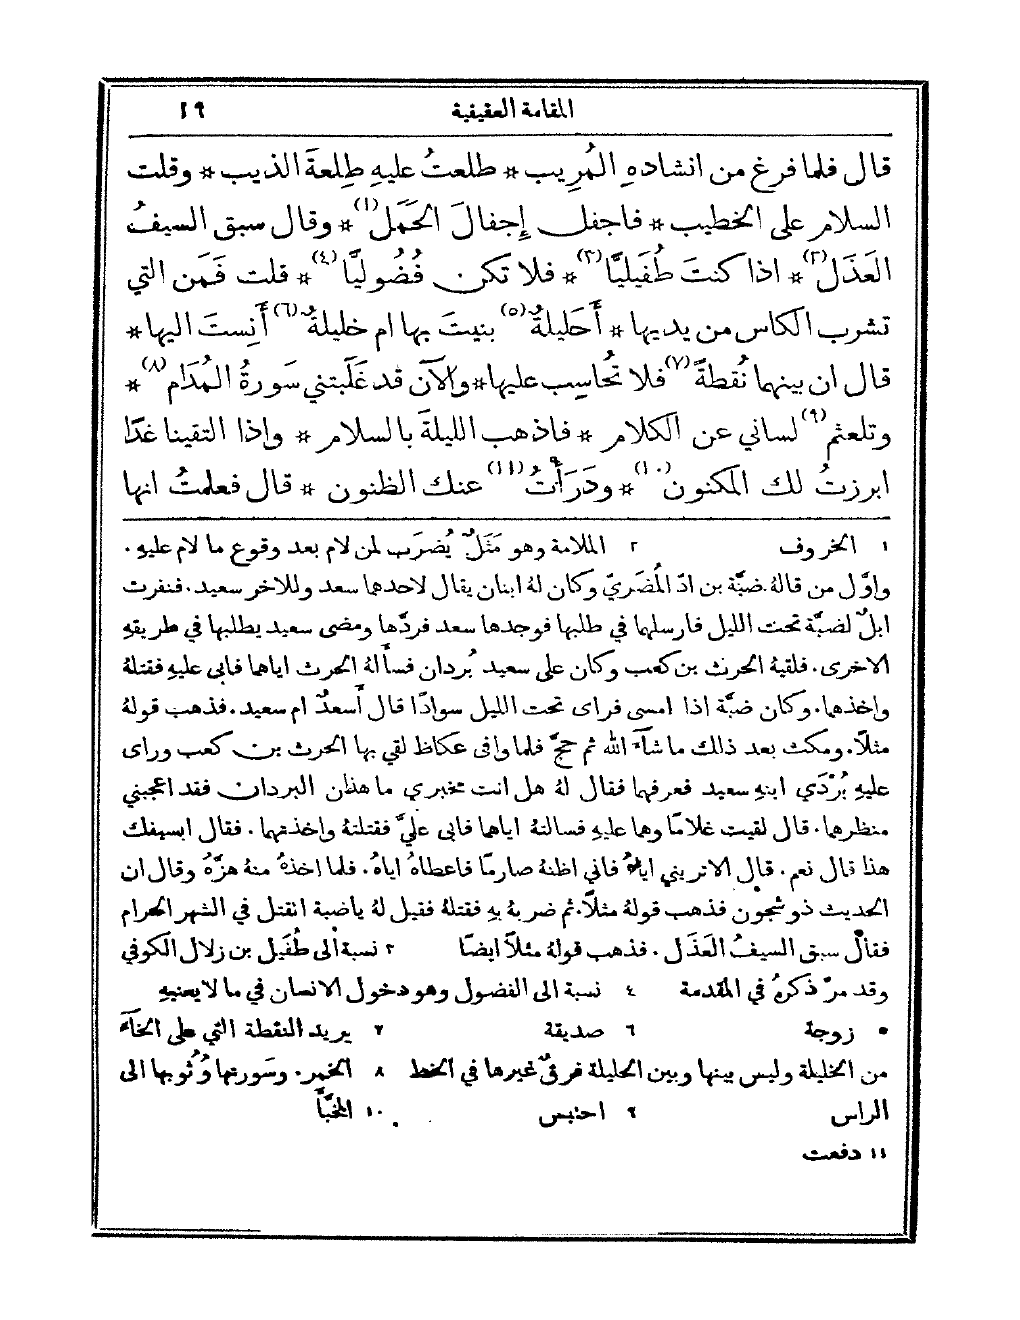 المقامة العقيقية ١٩
قال فلما فرغ من انشادهِ المُرِيب * طلعتُ عليهِ طِلعةَ الذيب * وقلت
السلام على الخطيب * فاجفل إجفالَ الحَمَل(١) * وقال سبق السيفُ
العَذَل(٢) * اذا كنتَ طُفَيليًّا(٣) * فلا تكن فُضُوليًّا(٤) * قلت فَمَن التي
تشرب الكاس من يديها * أَحَليلةٌ(٥) بنيتَ بها ام خليلةٌ(٦) أَنِستَ اليها *
قال ان بينهما نُقطةً(٧) فلا تُحاسِب عليها * والآن قد غَلَبتني سَورةُ المُدَام(٨) *
وتلعثم(٩) لساني عن الكلام * فاذهب الليلةَ بالسلام * واذا التقينا غدًا
ابرزتُ لك المكنون(١٠) * ودَرَأْتُ(١١) عنك الظنون * قال فعلمتُ انها
١ الخروف ٢ الملامة وهو مَثَلٌ يُضرَب لمن لام بعد وقوع ما لام عليهِ.
واوَّل من قالهُ ضبَّة بن ادّ المُضَريّ وكان لهُ ابنان يقال لاحدها سعد وللاخر سعيد. فنفرت
ابلٌ لضبَّة تحت الليل فارسلها في طلبها فوجدها سعد فردَّها ومضى سعيد يطلبها في طريقهِ
الاخرى. فلقيهُ الحرث بن كعب وكان على سعيد بُردان فسأَلهُ الحرث اياها فابى عليهِ فقتلهُ
واخذها. وكان ضبَّة اذا امسى فراى تحت الليل سوادًا قال أَسعدٌ ام سعيد. فذهب قولهُ
مثلًا. ومكث بعد ذلك ما شآءَ الله ثم حجَّ فلما وافى عكاظ لقي بها الحرث بن كعب وراى
عليهِ بُرْدَي ابنهِ سعيد فعرفها فقال لهُ هل انت مخبري ما هذان البردان فقد اعجبني
منظرها. قال لقيت غلامًا وهما عليهِ فسالتهُ اياها فابى عليَّ فقتلتهُ واخذتها. فقال ابسيفك
هذا قال نعم. قال الا تريني اياهُ فاني اظنهُ صارمًا فاعطاهُ اياهُ. فلما اخذهُ منهُ هزَّهُ وقال ان
الحديث ذو شجون فذهب قولهُ مثلًا. ثم ضربهُ بهِ فقتلهُ فقيل لهُ ياضبة اتقتل في الشهر الحرام
فقال سبق السيفُ العَذَل. فذهب قولهُ مثلًا ايضًا ٣ نسبة الى طُفَيل بن زلال الكوفي
وقد مرّ ذكرهُ في المقدمة ٤ نسبة الى الفضول وهو دخول الانسان في ما لا يعنيهِ
٥ زوجة ٦ صديقة ٧ يريد النقطة التي على الخآءِ
من الخليلة وليس بينها وبين الحليلة فرقٌ غيرها في الخط ٨ الخمر. وسَورتها وُثُوبها الى
الراس ٩ احتبس ١٠ المخبَّأ
١١ دفعت